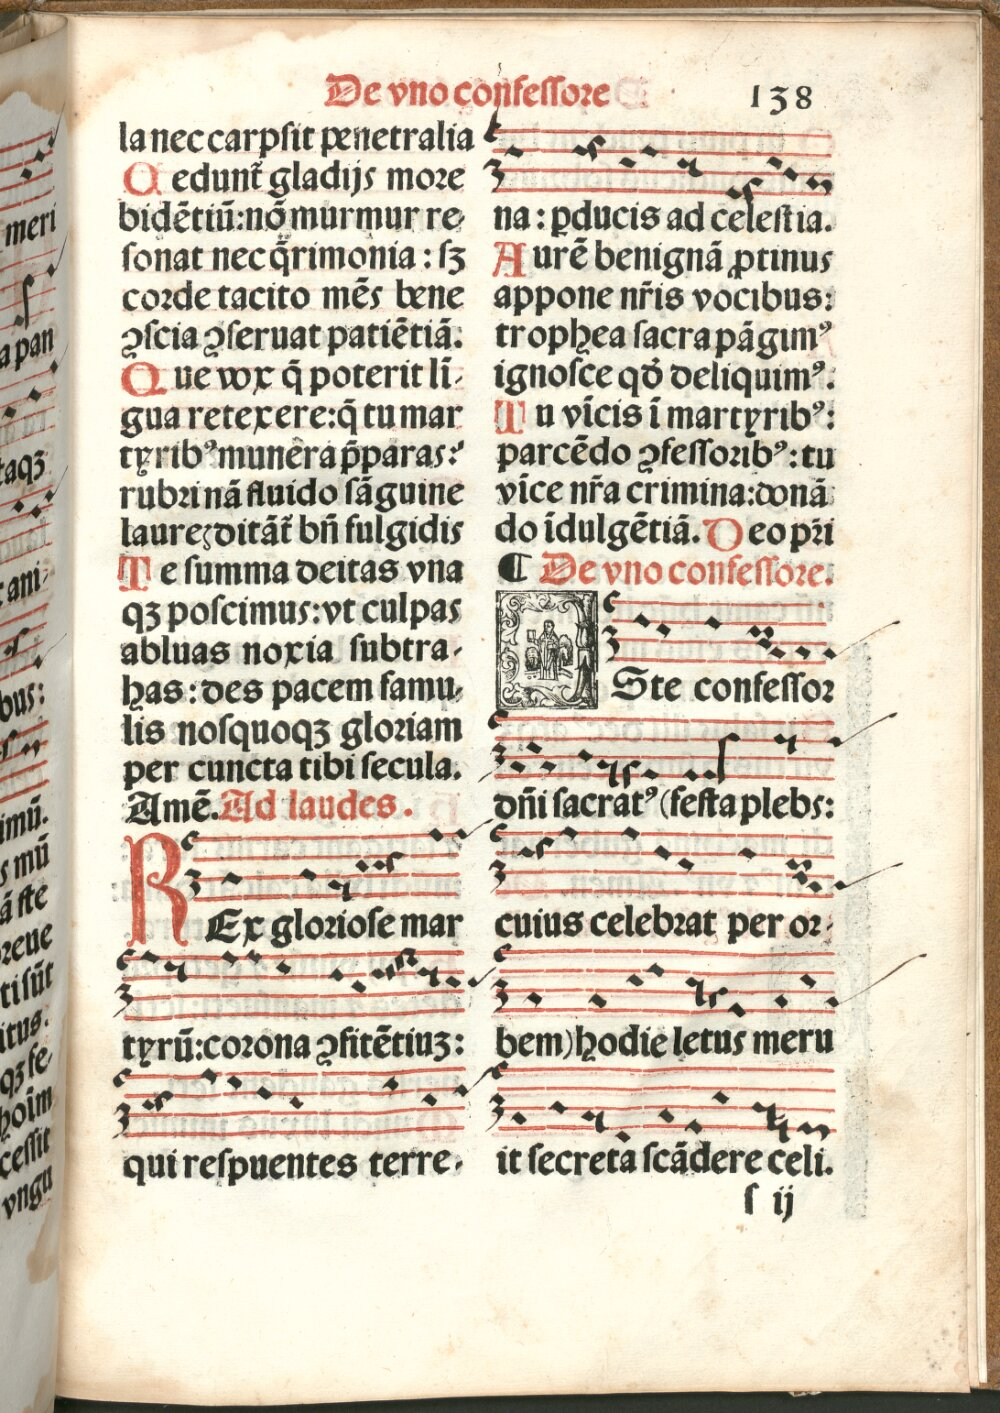 De vno confessore 138
la nec carpsit penetralia
Cedunt᷑ gladijs more
bidētiū:nō murmur re-
sonat nec q̄rimonia : sꝫ
corde tacito mēs bene
ꝯscia ꝯseruat patiētiā.
Que vox q̄ poterit lī-
gua retexere:q̄ tu mar
tyribꝰ munera p̄paras:
rubri nā fluido sāguine
laureꝫ ditāt᷑ bn̄ fulgidis
Te summa deitas vna
qꝫ poscimus:vt culpas
abluas noxia subtra-
has:des pacem famu-
lis nosquoqꝫ gloriam
per cuncta tibi secula.
Amē. Ad laudes.
REx gloriose mar
tyrū:corona ꝯfitētiuꝫ:
qui respuentes terre-
na : ꝑducis ad celestia.
Aurē benignā ꝓtinus
appone nr̄is vocibus:
trophea sacra pāgimꝰ
ignosce qđ deliquimꝰ.
Tu vīcis ī martyribꝰ:
parcēdo ꝯfessoribꝰ:tu
vīce nr̄a crimina:donā
do īdulgētiā. Deo pr̄i
¶ De vno confessore.
ISte confessor
dn̄i sacratꝰ (festa plebs:
cuius celebrat per or-
bem) hodie letus meru
it secreta scādere celi.
s ij
meri
a pan
taqꝫ
ani-
bus:
imū.
s mū
ā ste
reue
ti sūt
itus.
qꝫ fe-
hoīm
cessit
vngu